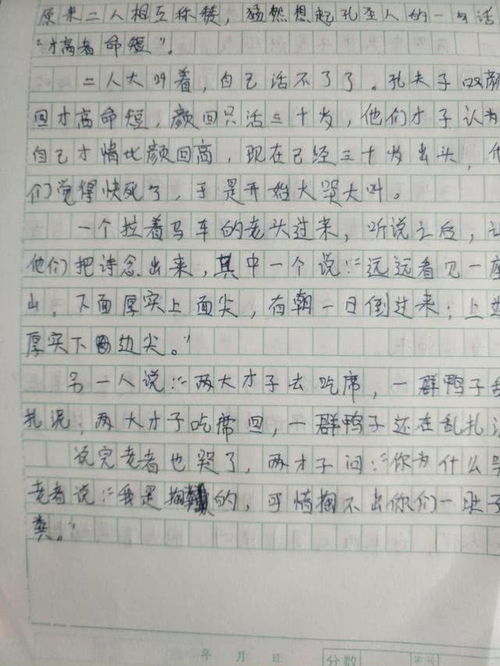 原来二人相互称赞，猛然想起孔圣人的一句话
“才高者命短”。
二人大叫着，自己活不了了。孔夫子叹颜
回才高命短，颜回只活三十岁，他们才子认为
自己才情比颜回高，现在已经三十岁出头，他
们觉得快死了，于是开始大哭大叫。
一个拉着马车的老头过来，听说之后，让
他们把诗念出来，其中一个说：“远远看见一座
山，下面厚实上面尖，有朝一日倒过来；上边
厚实下边尖。”
另一人说：“两大才子去吃席，一群鸭子乱
扎泥；两大才子吃席回，一群鸭子还在乱扎
说完老者也哭了，两才子问：“你为什么哭
老者说：“我是掏粪的，可惜掏不出你们一肚子
粪。”
年 月 日 分数